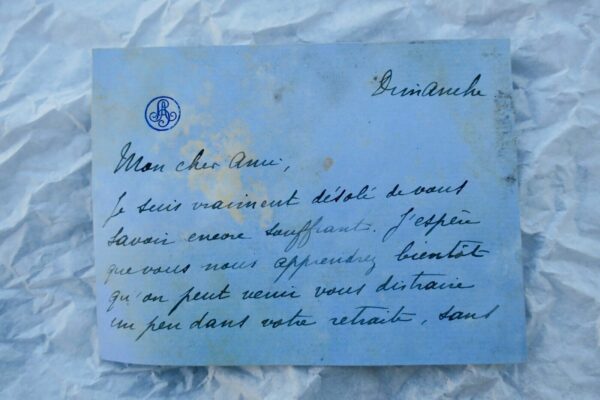 Dimanche
Mon cher Ami,
Je suis vraiment désolé de vous
savoir encore souffrant. J'espère
que vous nous apprendrez bientôt
qu'on peut venir vous distraire
un peu dans votre retraite, sans